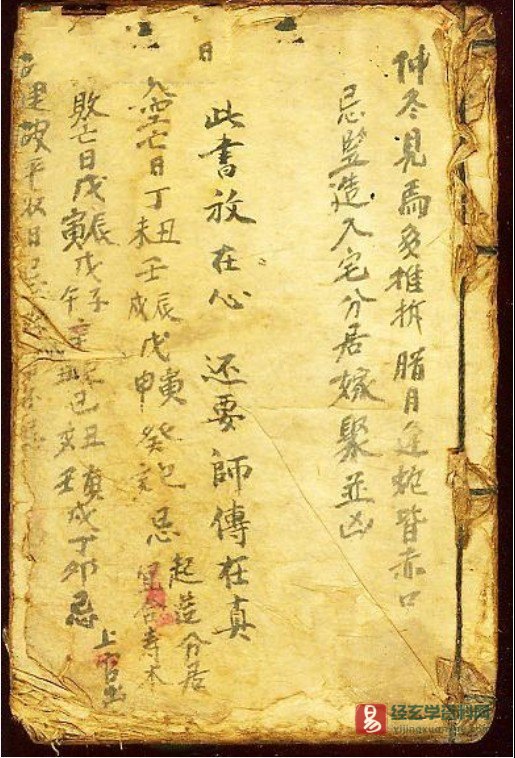 仲冬見馬多推拆 腊月逢蛇皆赤口
忌竪造入宅分居嫁聚並凶
此書放在心 还要師傅在真
八空亡日丁丑未壬辰戍戊寅申癸 忌起造分居 合寿木
敗亡日戊辰寅戊子午 己丑亥 寅壬戍丁卯忌 上官
建破平收日忌
日
易
经玄学资料网